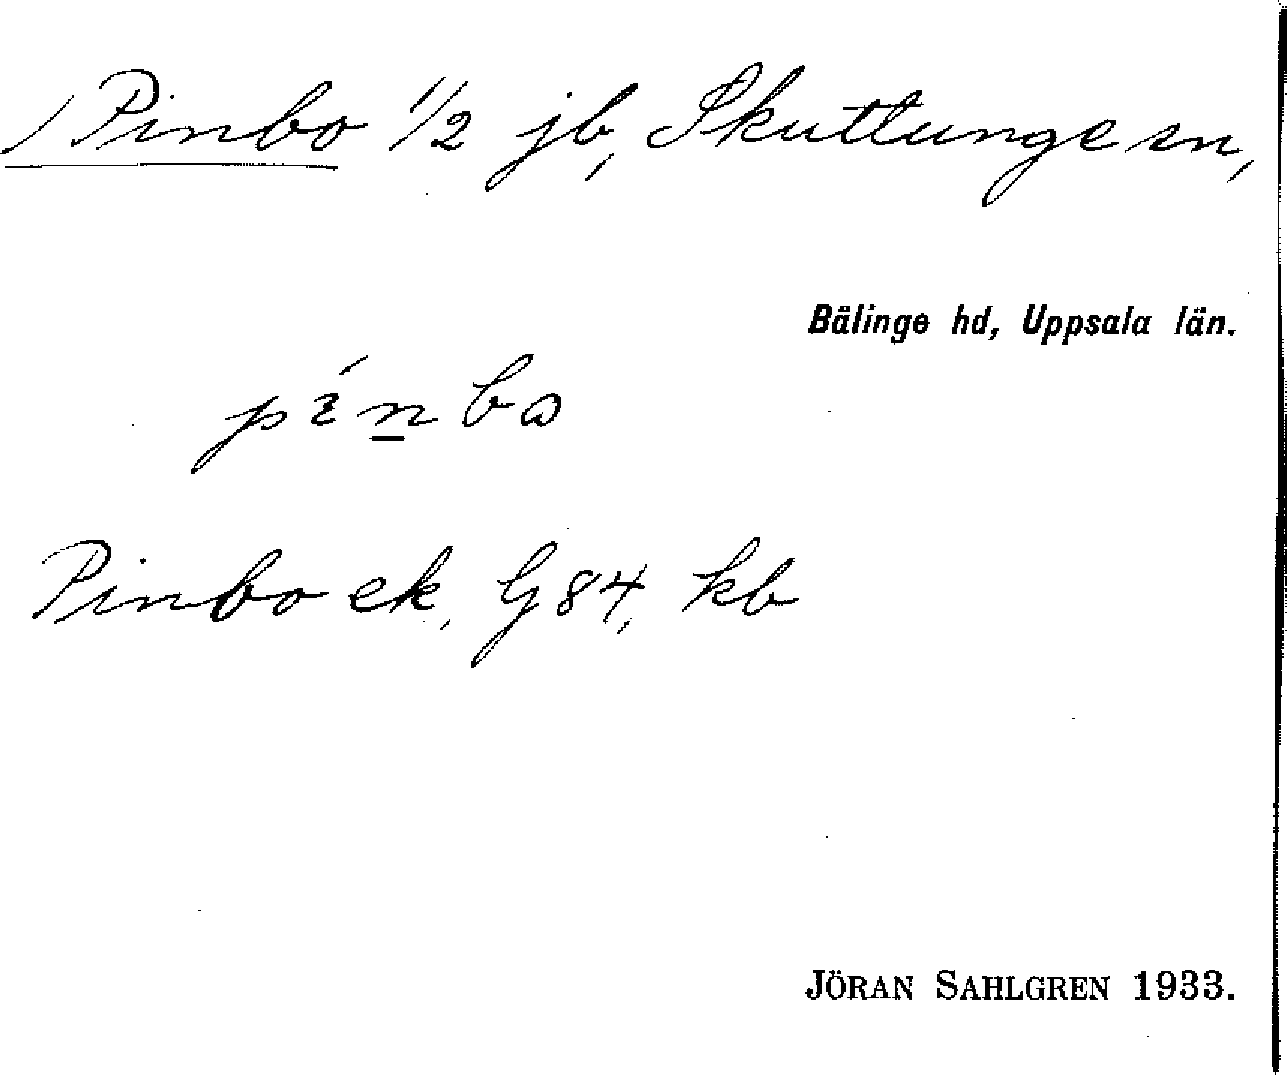 Pinbo 1/2 jb, Skuttunge sn,
Bälinge hd, Uppsala län.
Pinbo ek, G84, kb
JÖRAN SAHLGREN 1933.